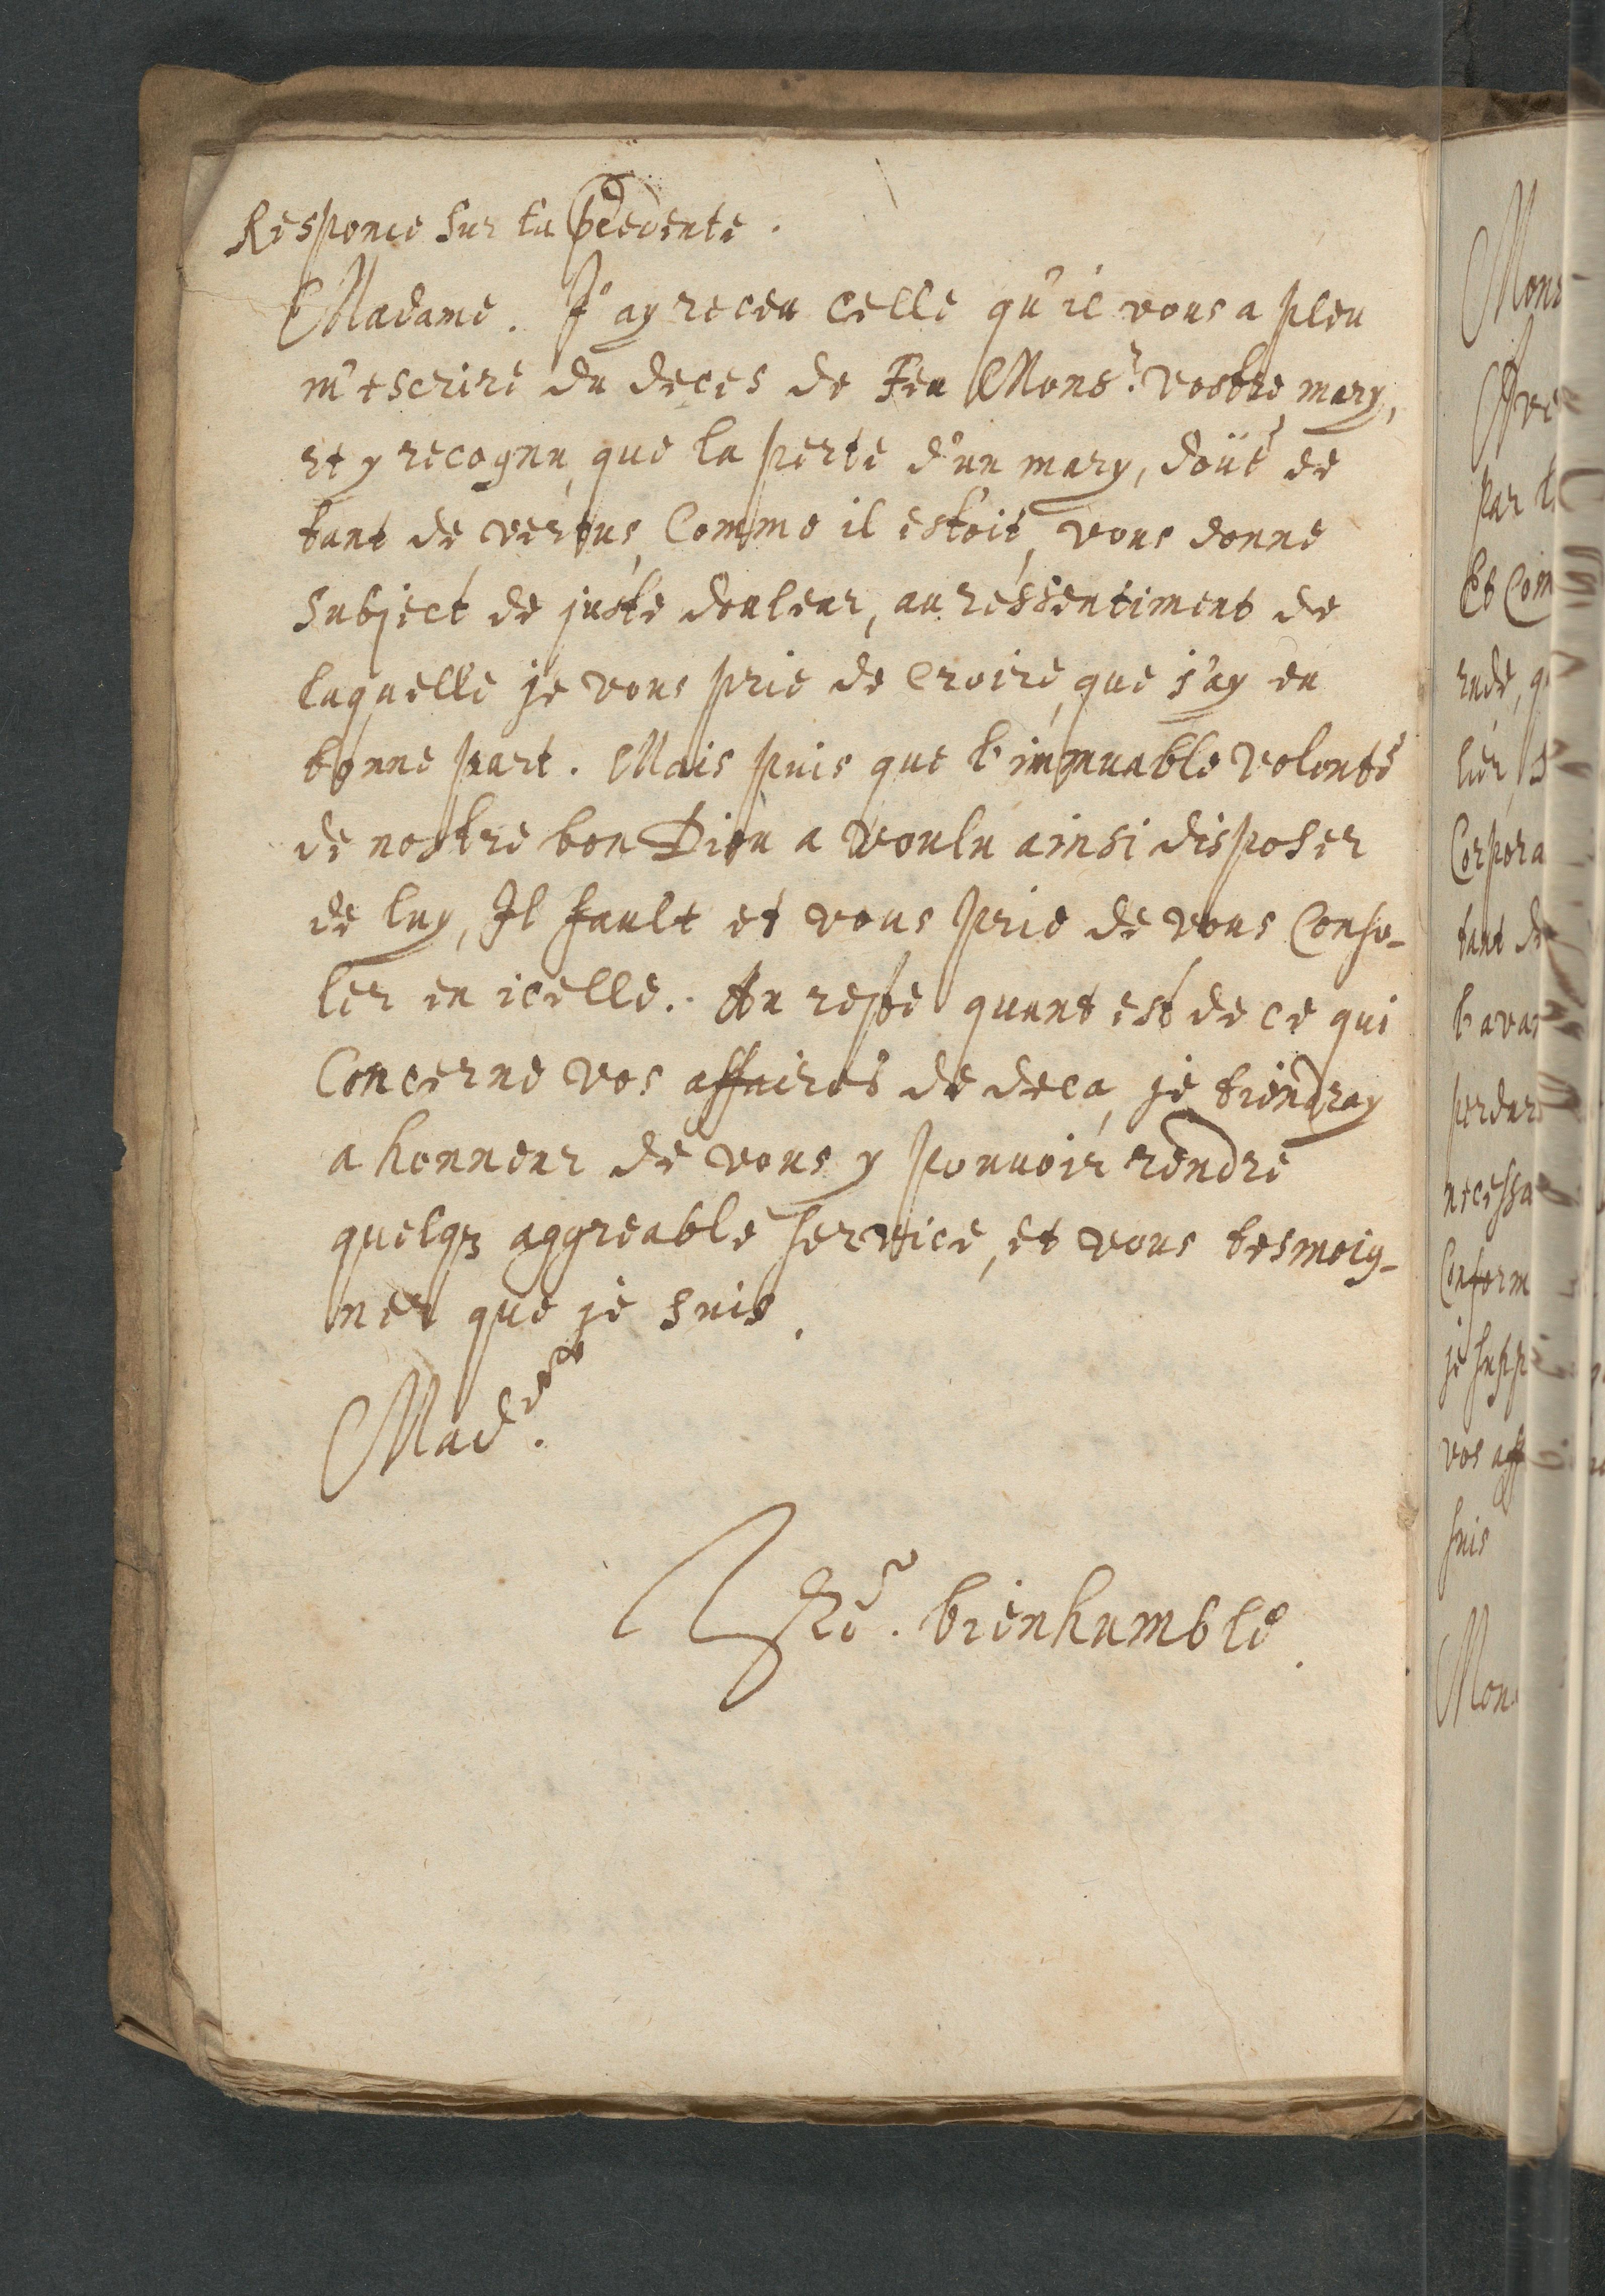 Responce sur la pcedente.
Madame. J'ay receu celle qu'il vous a pleu
m'escrire du deces de Feu Monsr. vostre mary,
et y recognu, que la perte d'un mary, doüé de
tant de vertus, Comme il estoit, vous donne
subject de juste douleur, au ressentiment de
laquelle je vous prie de croire, que j'ay eu
bonne part. Mais puis que l'immuable volonté
de nostre bon Dieu a voulu ainsi disposer
de luy, Il fault et vous prie de vous Conso-
ler en icelle. Au reste quant est de ce qui
Concerne vos affaires de deca, je tiendray
a honneur de vous y pouvoir rendre
quelqz aggreable service, et vous tesmoig-
ner que je suis.
Made.
Vre. bienhumble.
Mons
par l
Et Com
rude, q
lier, s
Corpora
tant de
l'avan
perdur
necessa
Conform
je supp
vos aff
suis
Mons